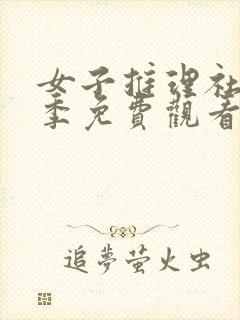 女子推理社
季免費觀看
追夢螢火虫